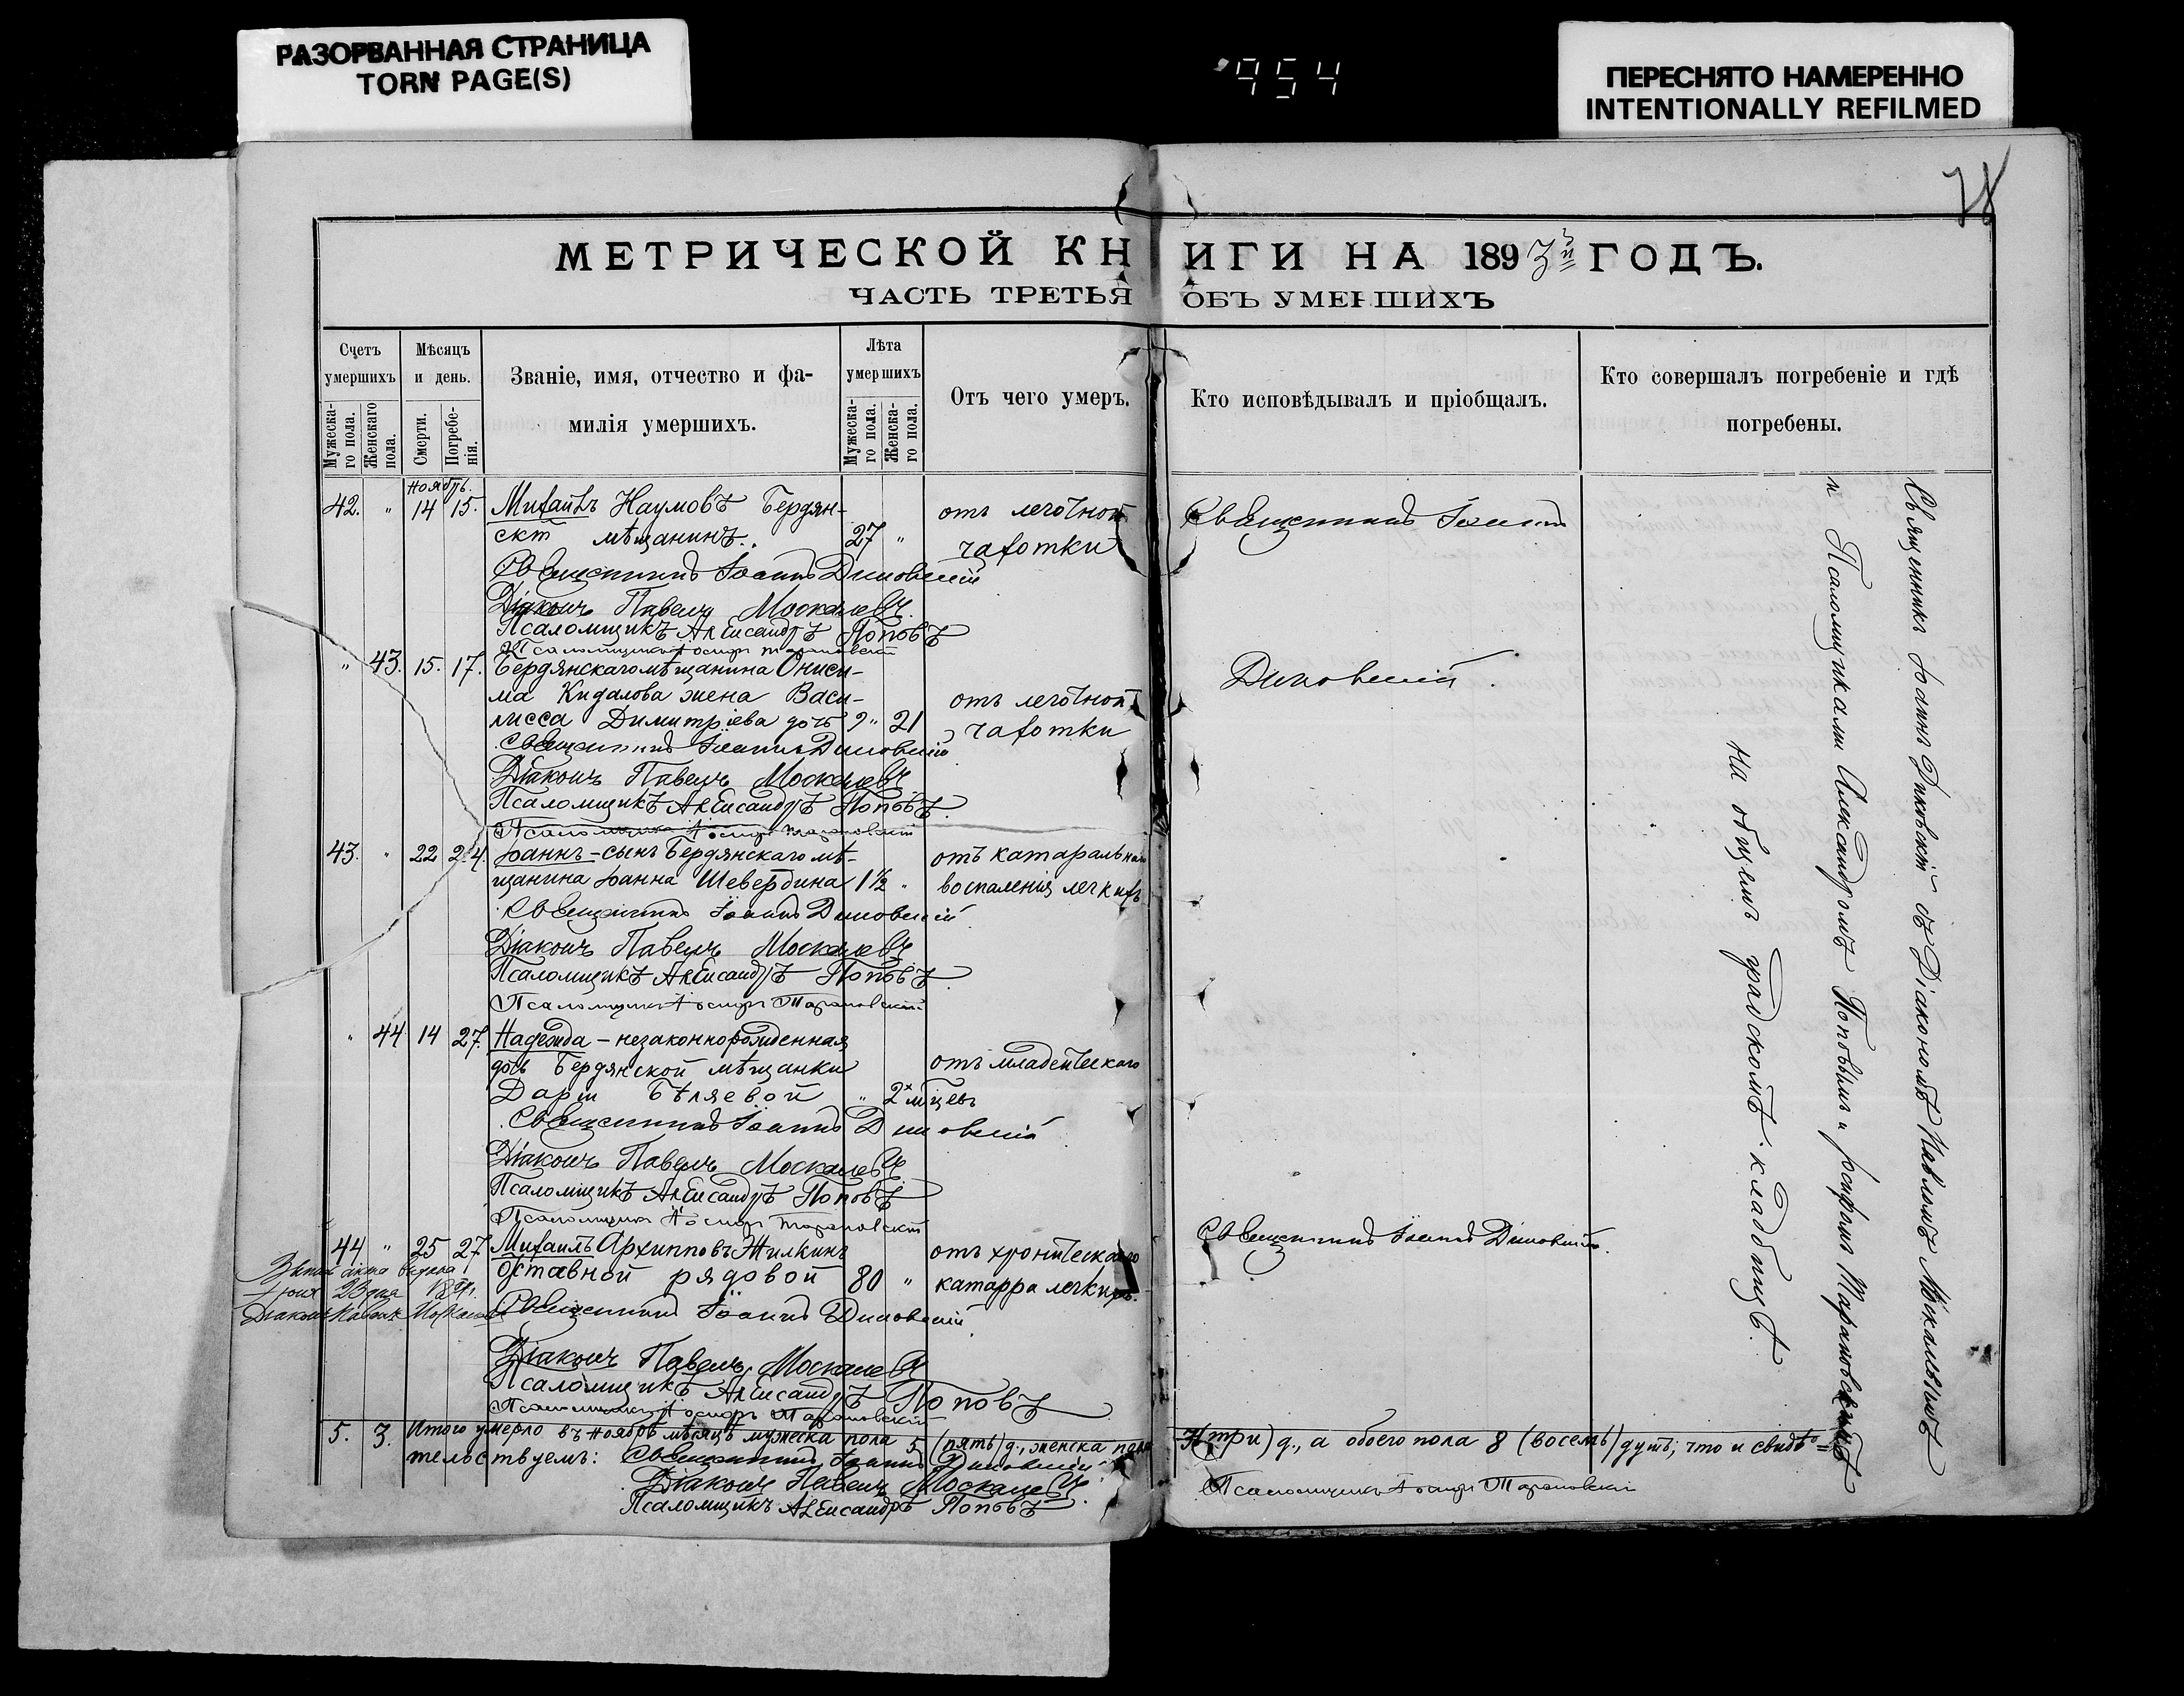 РАЗОРВАННАЯ СТРАНИЦА
TORN PAGE(S)
954
ПЕРЕСНЯТО НАМЕРЕННО
INTENTIONALLY REFILMED
МЕТРИЧЕСКОЙ КНИГИ НА 1893й ГОДЪ.
ЧАСТЬ ТРЕТЬЯ ОБЪ УМЕРШИХЪ
Счетъ умершихъ
Мужеска-го пола.
Женскаго пола.
Мѣсяцъ и день.
Смерти.
Погребе-нія.
Званіе, имя, отчество и фа-
милія умершихъ.
Лѣта умершихъ
Мужеска-го пола.
Женска-го пола.
Отъ чего умеръ.
Кто исповѣдывалъ и пріобщалъ.
Кто совершалъ погребеніе и гдѣ
погребены.
Ноябрь.
42. " 14 15. Михаилъ Наумовъ Бердян- отъ легочной Священникъ Іоаннъ
скій мѣщанинъ. 27 " чахотки
Священникъ Іоаннъ Диковскій
Діаконъ Павелъ Москалевъ
Псаломщикъ Александръ Поповъ
Псаломщикъ Іосифъ Тарановскій
" 43. 15. 17. Бердянскаго мѣщанина Ониси- Диковскій.
ма Кидалова жена Васи- отъ легочной
лисса Димитріева дочь " 21 чахотки
Священникъ Іоаннъ Диковскій
Діаконъ Павелъ Москалевъ
Псаломщикъ Александръ Поповъ
Псаломщикъ Іосифъ Тарановскій
43. " 22 24. Іоаннъ - сынъ Бердянскаго мѣ- отъ катаральнаго
щанина Іоанна Шевербина 1½ " воспаленія легкихъ
Священникъ Іоаннъ Диковскій
Діаконъ Павелъ Москалевъ
Псаломщикъ Александръ Поповъ
Псаломщикъ Іосифъ Тарановскій
" 44 14 27. Надежда - незаконнорожденная
дочь Бердянской мѣщанки отъ младенческаго
Даріи Бѣляевой " 2х мѣцевъ
Священникъ Іоаннъ Диковскій
Діаконъ Павелъ Москалевъ
Псаломщикъ Александръ Поповъ
Псаломщикъ Іосифъ Тарановскій
44 " 25 27 Михаилъ Архипповъ Жилкинъ отъ хроническаго Священникъ Іоаннъ Диковскій.
отставной рядовой 80 " катарра легкихъ.
Діаконъ Павелъ Москалевъ
Священникъ Іоаннъ Диковскій
Діаконъ Павелъ Москалевъ
Псаломщикъ Александръ Поповъ
Псаломщикъ Іосифъ Тарановскій
Священникъ Іоаннъ Диковскій съ Діакономъ Павломъ Москалевымъ
и Псаломщиками Александромъ Поповымъ и Іосифомъ Тарановскимъ
на общемъ градскомъ кладбищѣ.
5. 3. Итого умерло въ Ноябрѣ мѣсяцѣ мужеска пола 5 (пять) д., женска пола 3 (три) д., а обоего пола 8 (восемь) душъ; что и свидѣ=
тельствуемъ: Священникъ Іоаннъ Диковскій
Діаконъ Павелъ Москалевъ
Псаломщикъ Александръ Поповъ
Псаломщикъ Іосифъ Тарановскій